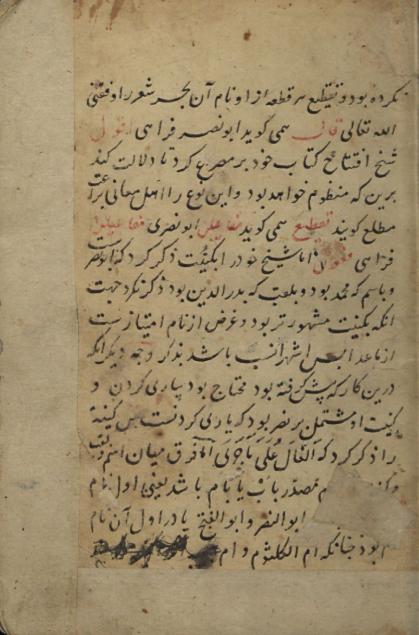 کرده بود و تقطیع هر قطعه از او نام آن بحر شعر را وفقنی
الله تعالی قال همی گوید ابونصر فراهی اقول
شیخ افتتاح کتاب خود بر مصرع کرد تا دلالت کند
برین که منظوم خواهد بود و این نوع را اهل معانی براعت
مطلع گویند تقطیع همی گوید مفاعیلن ابونصری مفاعیلن
فراهی اما شیخ خود را بکنیت ذکر کرد که ابونصر
و باسم که محمد بود و بلقب که بدرالدین بود ذکر نکرد جهت
آنکه بکنیت مشهورتر بود و غرض از نام امتیاز است
از ماعدا پس اشهر انسب باشد بذکر وجه دیگر آنکه
درین کار که پیش گرفته بود محتاج بود بیاری کردن و
کنیت او مشتمل بر نصر بود که یاری کردنست پس کنیة
را ذکر کرد که الفال علی ما جری فرق میان اسم و لقب
مصدر باب یا بام باشد یعنی اول نام
ابوالنصر و ابوالفتح یا در اول آن نام
بود چنانکه ام الکلثوم و ام